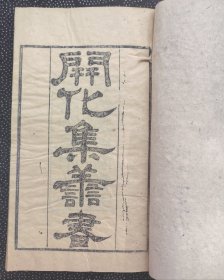 開化集善書